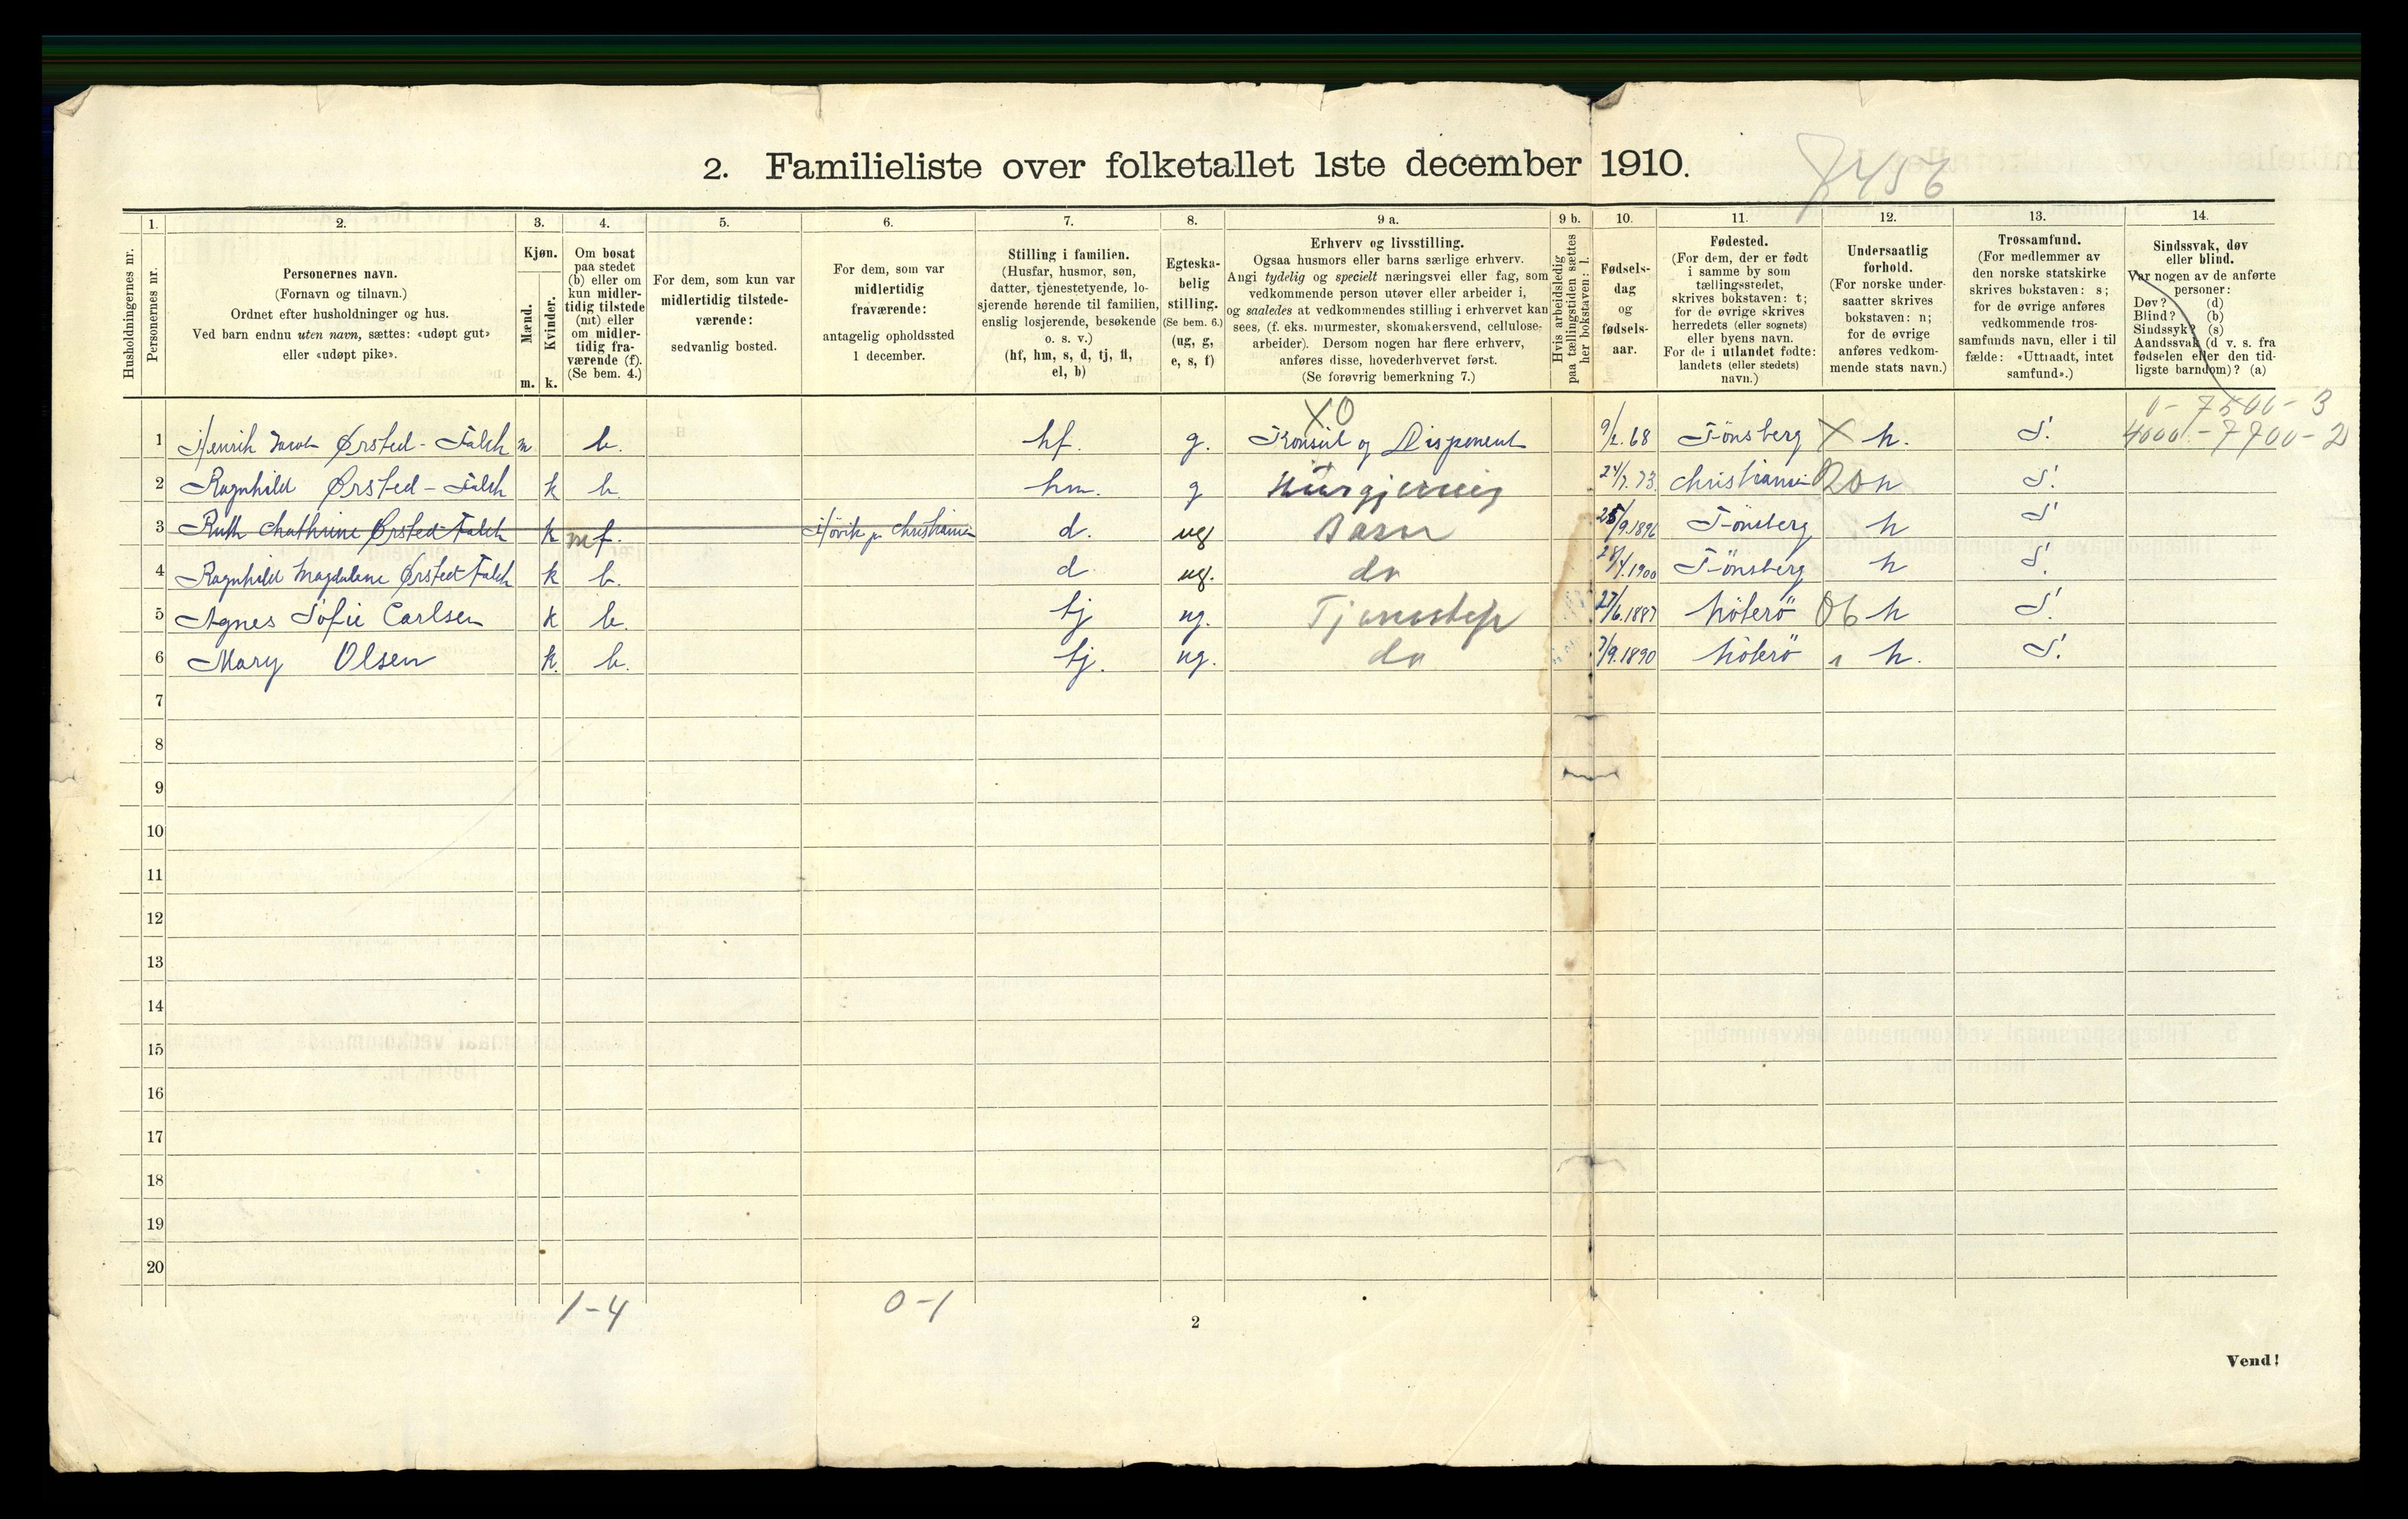 2. Familieliste over folketallet 1ste december 1910.
7456
Husholdningernes nr.
1.
Personernes nr.
2.
Personernes navn.
(Fornavn og tilnavn.)
Ordnet efter husholdninger og hus.
Ved barn endnu uten navn, sættes: «udøpt gut»
eller «udøpt pike».
3.
Kjøn.
Mænd.
Kvinder.
m. k.
4.
Om bosat
paa stedet
(b) eller om
kun midler-
tidig tilstede
(mt) eller
om midler-
tidig fra-
værende (f).
(Se bem. 4.)
5.
For dem, som kun var
midlertidig tilstede-
værende:
sedvanlig bosted.
6.
For dem, som var
midlertidig
fraværende:
antagelig opholdssted
1 december.
7.
Stilling i familien.
(Husfar, husmor, søn,
datter, tjenestetyende, lo-
sjerende hørende til familien,
enslig losjerende, besøkende
o. s. v.)
(hf, hm, s, d, tj, fl,
el, b)
8.
Egteska-
belig
stilling.
(Se bem. 6.)
(ug, g,
e, s, f)
9 a.
Erhverv og livsstilling.
Ogsaa husmors eller barns særlige erhverv.
Angi tydelig og specielt næringsvei eller fag, som
vedkommende person utøver eller arbeider i,
og saaledes at vedkommendes stilling i erhvervet kan
sees, (f. eks. murmester, skomakersvend, cellulose-
arbeider). Dersom nogen har flere erhverv,
anføres disse, hovederhvervet først.
(Se forøvrig bemerkning 7.)
9 b.
Hvis arbeidsledig
paa tællingstiden sættes
her bokstaven: l.
10.
Fødsels-
dag
og
fødsels-
aar.
11.
Fødested.
(For dem, der er født
i samme by som
tællingsstedet,
skrives bokstaven: t;
for de øvrige skrives
herredets (eller sognets)
eller byens navn.
For de i utlandet fødte:
landets (eller stedets)
navn.)
12.
Undersaatlig
forhold.
(For norske under-
saatter skrives
bokstaven: n;
for de øvrige
anføres vedkom-
mende stats navn.)
13.
Trossamfund.
(For medlemmer av
den norske statskirke
skrives bokstaven: s;
for de øvrige anføres
vedkommende tros-
samfunds navn, eller i til
fælde: «Uttraadt, intet
samfund».)
14.
Sindssvak, døv
eller blind.
Var nogen av de anførte
personer:
Døv? (d)
Blind? (b)
Sindssyk? (s)
Aandssvak (d v. s. fra
fødselen eller den tid-
ligste barndom)? (a)
XO 0-7500-3
1 Henrik Jacob Ørsted-Falch m b. hf. g. Konsul og Disponent 9/2.68 Tönsberg X n. S. 4000-7700-2
2 Ragnhild Ørsted-Falch k b. hm. g Husgjerning 24/7.73. Christiania n S.
3 Ruth Chathrine Ørsted-Falch k mf. Hövik pr Christiania d. ug Barn 25/9.1896 Tönsberg n S
4 Ragnhild Magdalene Ørsted Falch k b. d ug. do 28/4.1900 Tönsberg n S.
5 Agnes Sofie Carlsen k b. tj ug. Tjenestep 27/6.1887 Nöterö 06 n S.
6 Mary Olsen k. b. tj. ug. do 7/9.1890 Nöterö n. S.
7
8
9
10
11
12
13
14
15
16
17
18
19
20
1-4 0-1
2
Vend!